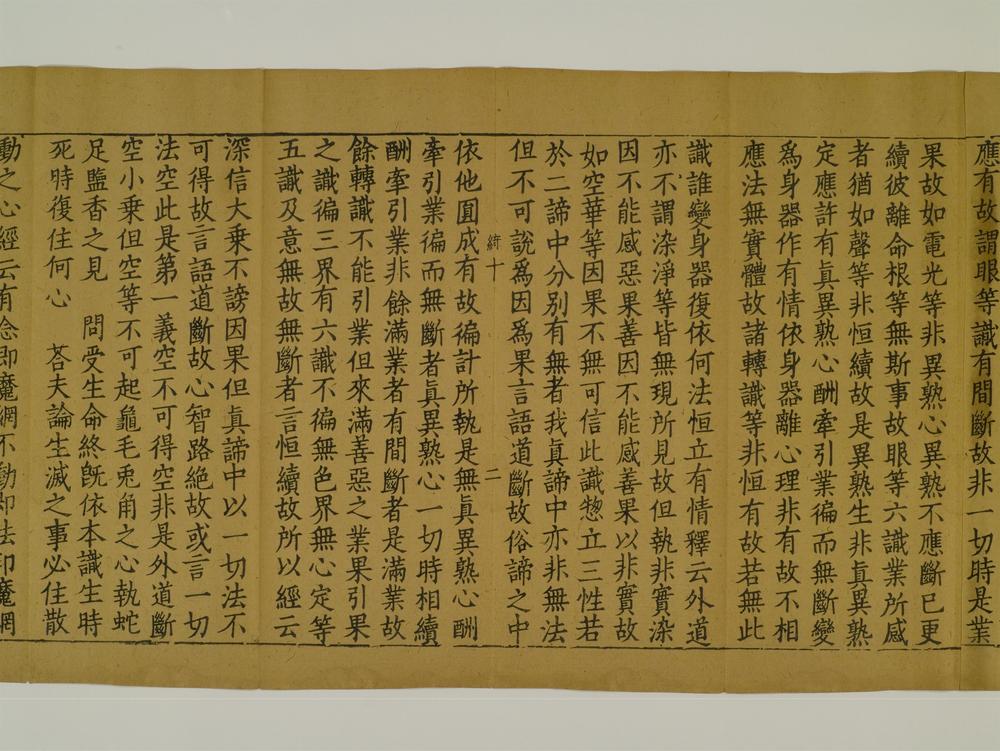 應有故謂眼等識有間斷故非一切時是業
果故如電光等非異熟心異熟不應斷已更
續彼離命根等無斯事故眼等六識業所感
者猶如聲等非恒續故是異熟生非眞異熟
定應許有眞異熟心酬牽引業徧而無斷變
爲身器作有情依身器離心理非有故不相
應法無實體故諸轉識等非恒有故若無此
識誰變身器復依何法恒立有情釋云外道
亦不謂染淨等皆無現所見故但執非實染
因不能感惡果善因不能感善果以非實故
如空華等因果不無可信此識惣立三性若
於二諦中分別有無者我眞諦中亦非無法
但不可說爲因爲果言語道斷故俗諦之中
綺十 二
依他圓成有故徧計所執是無眞異熟心酬
牽引業徧而無斷者眞異熟心一切時相續
酬牽引業非餘滿業者有間斷者是滿業故
餘轉識不能引業但來滿善惡之業果引果
之識徧三界有六識不徧無色界無心定等
五識及意無故無斷者言恒續故所以經云
深信大乘不謗因果但眞諦中以一切法不
可得故言語道斷故心智路絶故或言一切
法空此是第一義空不可得空非是外道斷
空小乘但空等不可起龜毛兎角之心執蛇
足鹽香之見 問受生命終旣依本識生時
死時復住何心 荅夫論生滅之事必住散
動之心經云有念即魔網不動即法印魔網